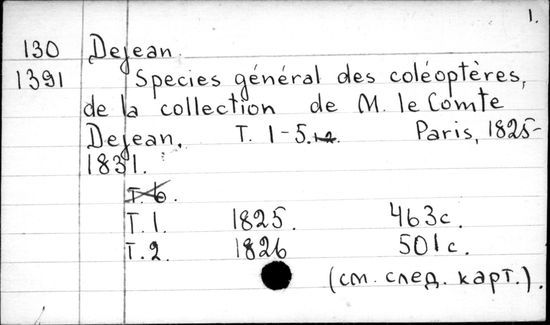 1.
130 Dejean.
1391 Species général des coléoptères,
de la collection de M. le Comte
Dejean. T. 1-5. Paris, 1825-
1831.
T. 6.
T. 1. 1825. 463c.
T. 2. 1826 501c.
(см. след. карт.).